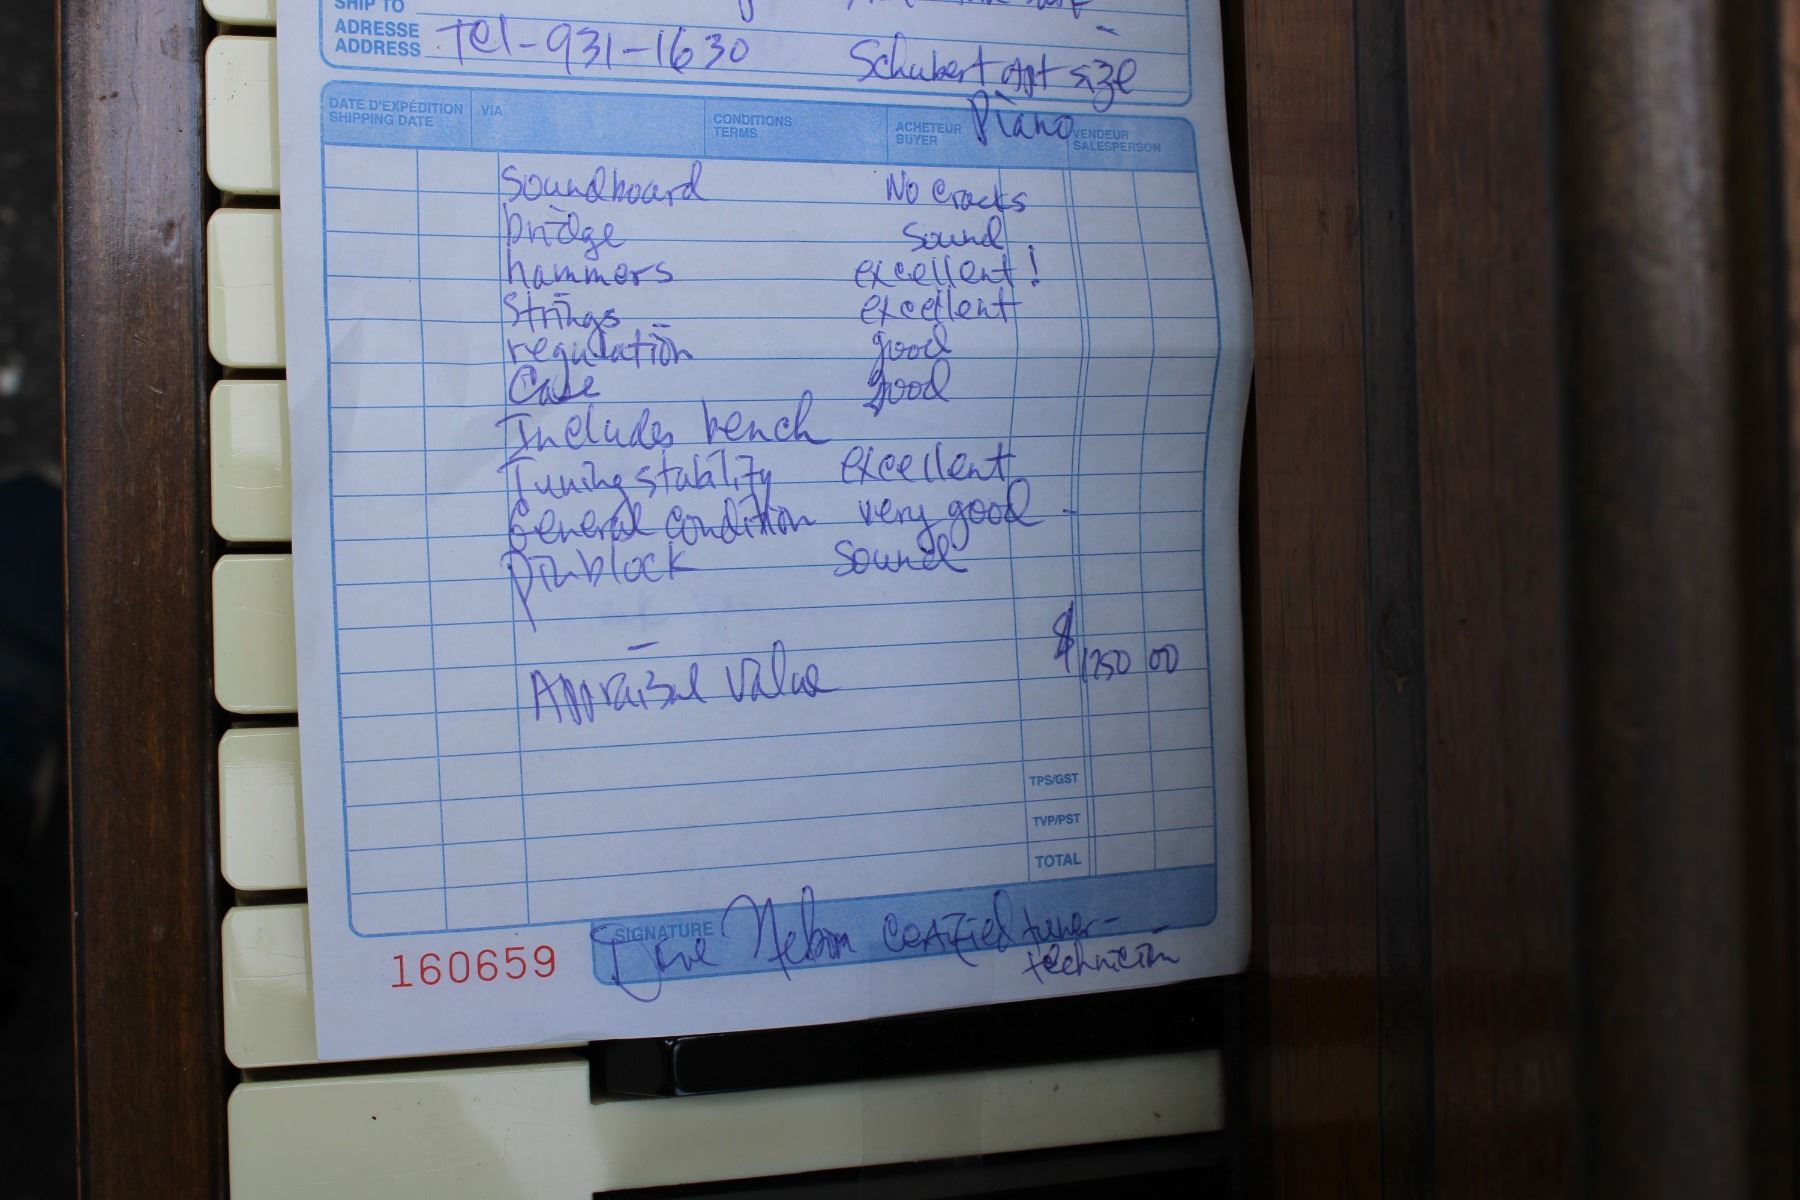 SHIP TO
ADRESSE
ADDRESS Tel-931-1630 Schubert apt size
Piano
DATE D'EXPÉDITION
SHIPPING DATE
VIA
CONDITIONS
TERMS
ACHETEUR
BUYER
VENDEUR
SALESPERSON
Soundboard No cracks
bridge sound
hammers excellent!
Strings excellent
regulation good
Case good
Includes bench
Tuning stability excellent
General condition very good -
pinblock sound
Appraisal value $1250 00
TPS/GST
TVP/PST
TOTAL
160659
SIGNATURE Dave Nelson certified tuner-
technician